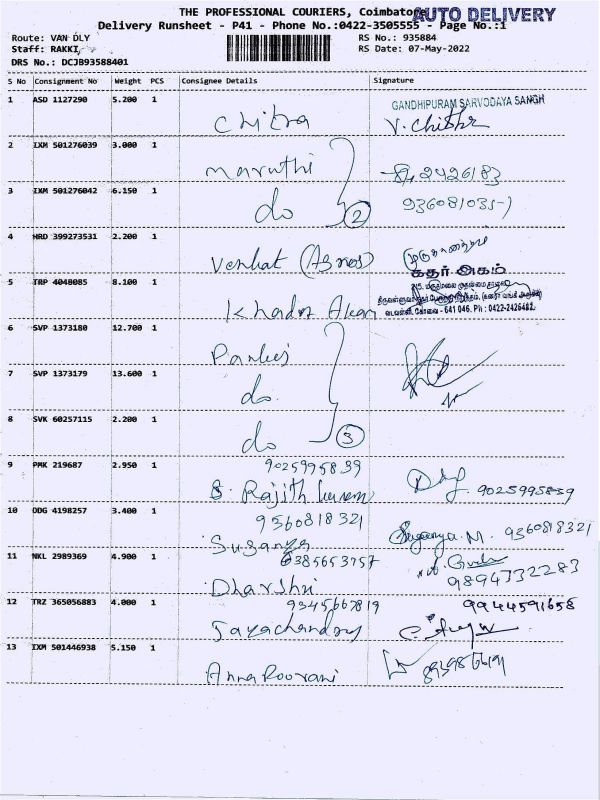 THE PROFESSIONAL COURIERS, Coimbatore
AUTO DELIVERY
Delivery Runsheet - P41 - Phone No.:0422-3505555 - Page No.:1
Route: VAN DLY
RS No.: 935884
Staff: RAKKI,
RS Date: 07-May-2022
DRS No.: DCJB93588401
S No Consignment No Weight PCS Consignee Details Signature
1 ASD 1127290 5.200 1 Chitra
GANDHIPURAM SARVODAYA SANGH
V. Chithr
2 IXM 501276039 3.000 1 Maruthi
2426183
3 IXM 501276042 6.150 1 do 2
4 NRD 399273531 2.200 1 Venkat (Agnes)
கதர் அகம்
5 TRP 4048085 8.100 1 Khadar Akam
வடவள்ளி, கோவை - 641 046. Ph : 0422-2426482
6 SVP 1373180 12.700 1
7 SVP 1373179 13.600 1 do
8 SVK 60257115 2.200 1 do 3
9 PMK 219687 2.950 1 9025995839
S. Rajith
9025995839
10 ODG 4198257 3.400 1 9360818321
Suganya
Suganya.M. 9360818321
11 NKL 2989369 4.900 1 6385653757
Dharshni
9894732283
12 TRZ 365056883 4.000 1 9345667819
Jayachandra
9944591658
13 IXM 501446938 5.150 1 Annapoorani